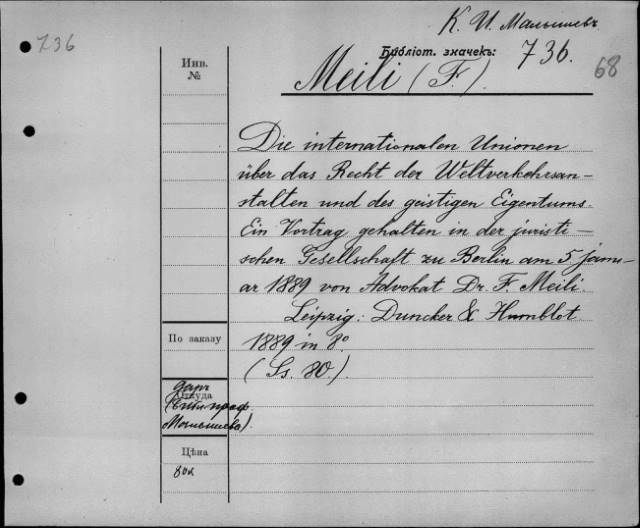 К. И. Малышевъ
736
Библіот. значекъ: 736.
68
Инв.
№
Meili (F.)
Die internationalen Unionen
über das Recht der Weltverkehrsan-
stalten und des geistigen Eigentums.
Ein Vortrag gehalten in der juristi-
schen Gesellschaft zu Berlin am 5 janu-
ar 1889 von Advokat Dr. F. Meili.
Leipzig: Duncker & Humblot
По заказу
1889 in 8º
(Ss. 80.)
даръ
Откуда
(библ. проф.
Малышева).
Цѣна
80к